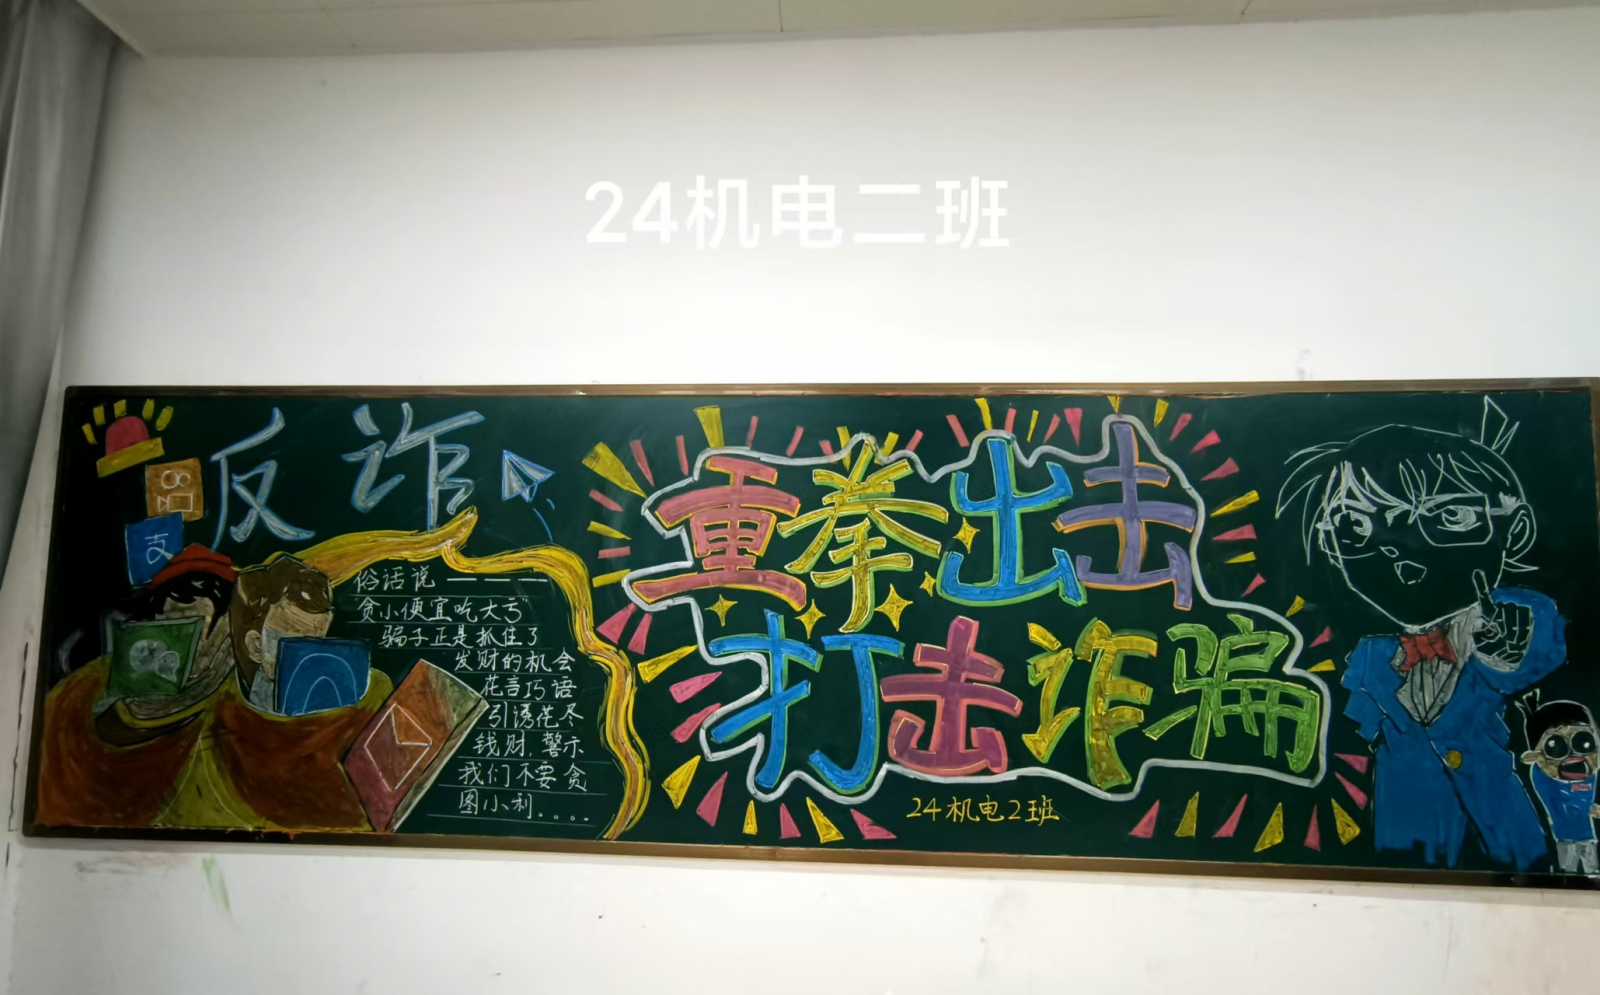 24机电二班
反诈
支
俗话说————
贪小便宜吃大亏
骗子正是抓住了
发财的机会
花言巧语
引诱花尽
钱财,警示
我们不要贪
图小利....
重拳出击
打击诈骗
24机电2班